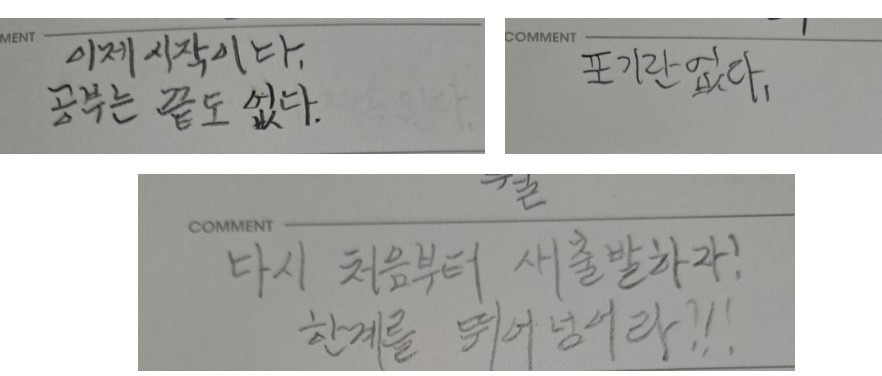 MENT
이제 시작이다.
공부는 끝도 없다.
COMMENT
포기란 없다.
COMMENT
다시 처음부터 새출발하자!
한계를 뛰어넘어라?!!